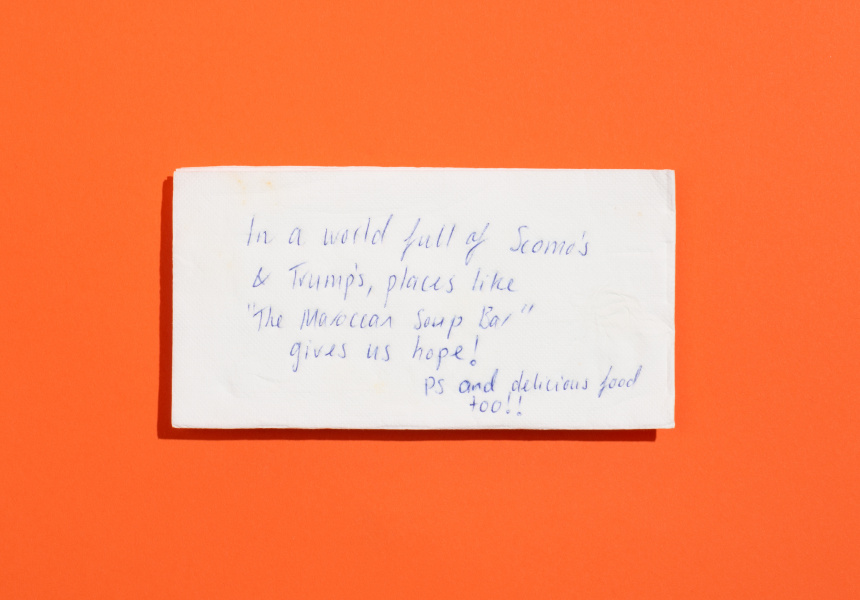 In a world full of Scomo's
& Trump's, places like
"The Maroccan Soup Bar"
gives us hope!
PS and delicious food
too!!